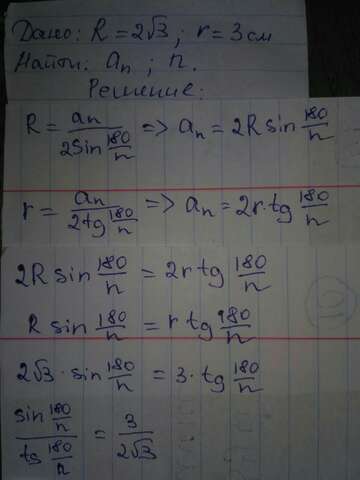 Дано: R = 2√3; r = 3 см
Найти: aₙ ; n.
Решение:
R = aₙ / 2sin 180/n => aₙ = 2R sin 180/n
r = aₙ / 2tg 180/n => aₙ = 2r·tg 180/n
2R sin 180/n = 2r tg 180/n
R sin 180/n = r tg 180/n
2√3 · sin 180/n = 3 · tg 180/n
sin 180/n / tg 180/n = 3 / 2√3